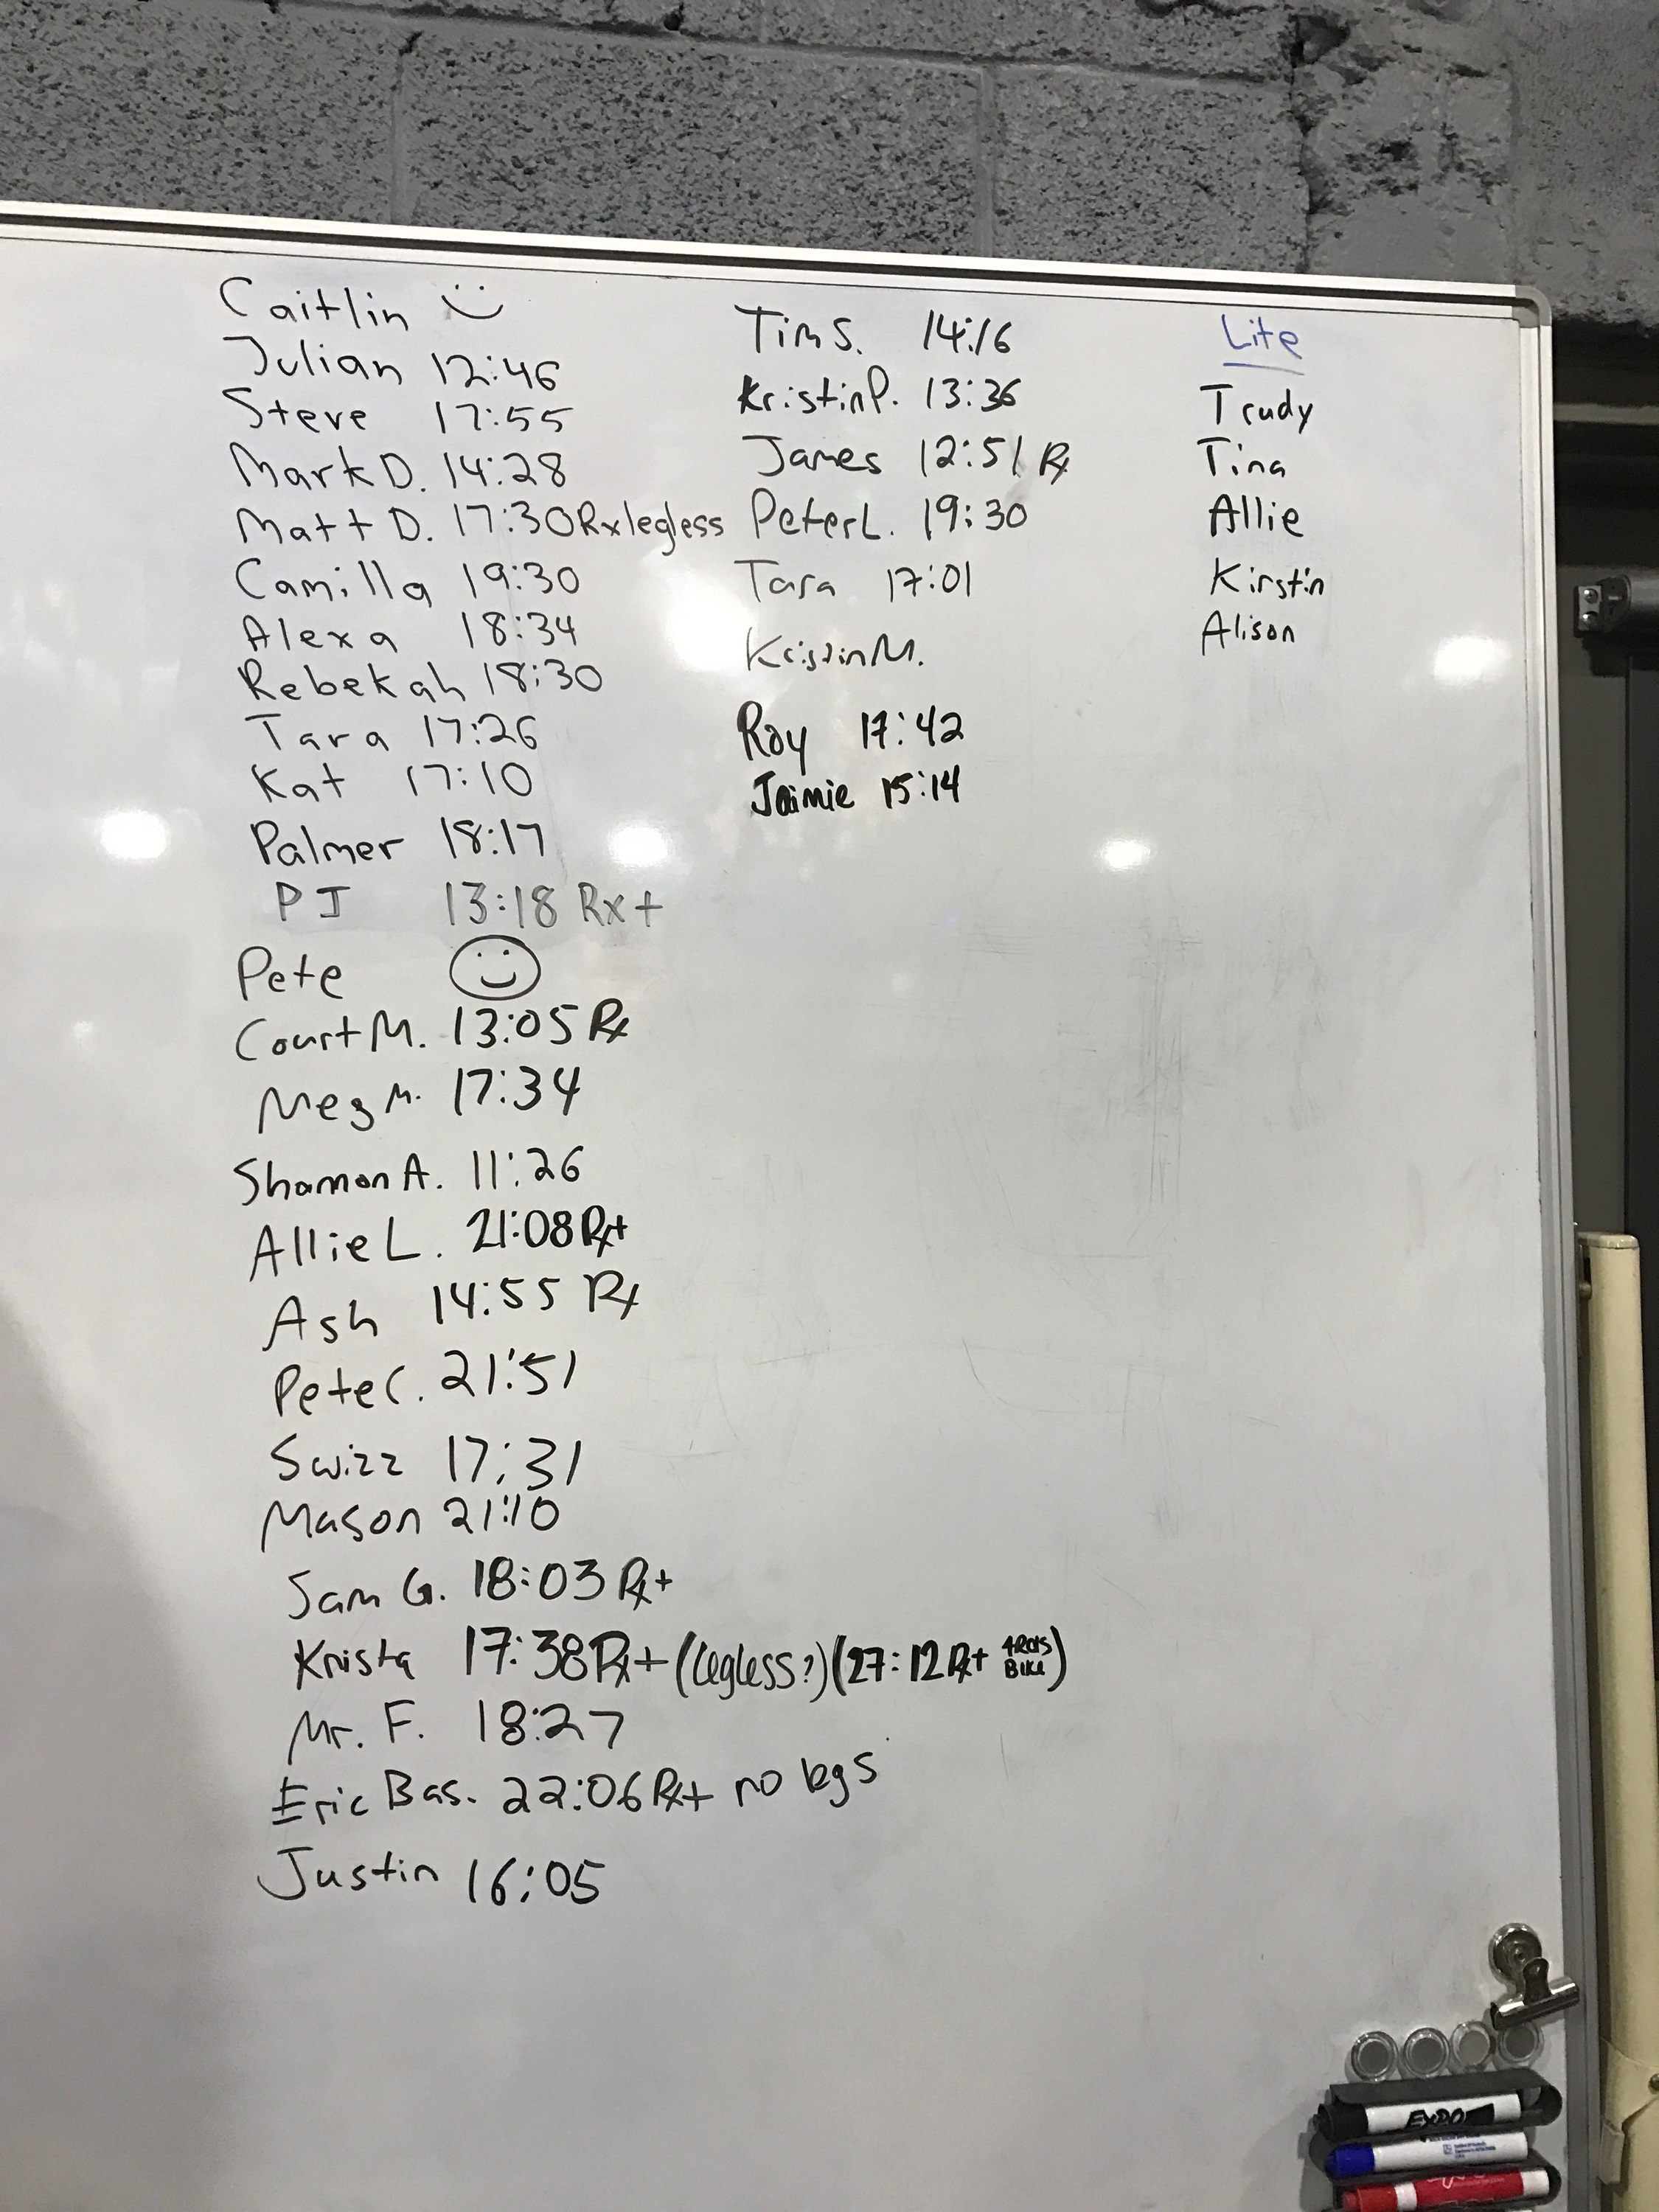 Caitlin
Julian 12:46
Steve 17:55
Mark D. 14:28
Matt D. 17:30 Rx legless
Camilla 19:30
Alexa 18:34
Rebekah 18:30
Tara 17:26
Kat 17:10
Palmer 18:17
PJ 13:18 Rx+
Pete
Court M. 13:05 Rx
Meg M. 17:34
Shamon A. 11:26
Allie L. 21:08 Rx+
Ash 14:55 Rx
Pete C. 21:51
Swizz 17:31
Mason 21:10
Sam G. 18:03 Rx+
Krista 17:38 Rx+ (legless?) (27:12 Rx+ 4RDS BIKE)
Mr. F. 18:27
Eric Bas. 22:06 Rx+ no legs
Justin 16:05
Tim S. 14:16
Kristin P. 13:36
James 12:51 Rx
Peter L. 19:30
Tara 17:01
Kristin M.
Roy 17:42
Jaimie 15:14
Lite
Trudy
Tina
Allie
Kirstin
Alison
EXPO